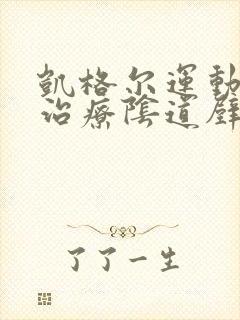 凱格尔運動
治療陰道壁
了了一生